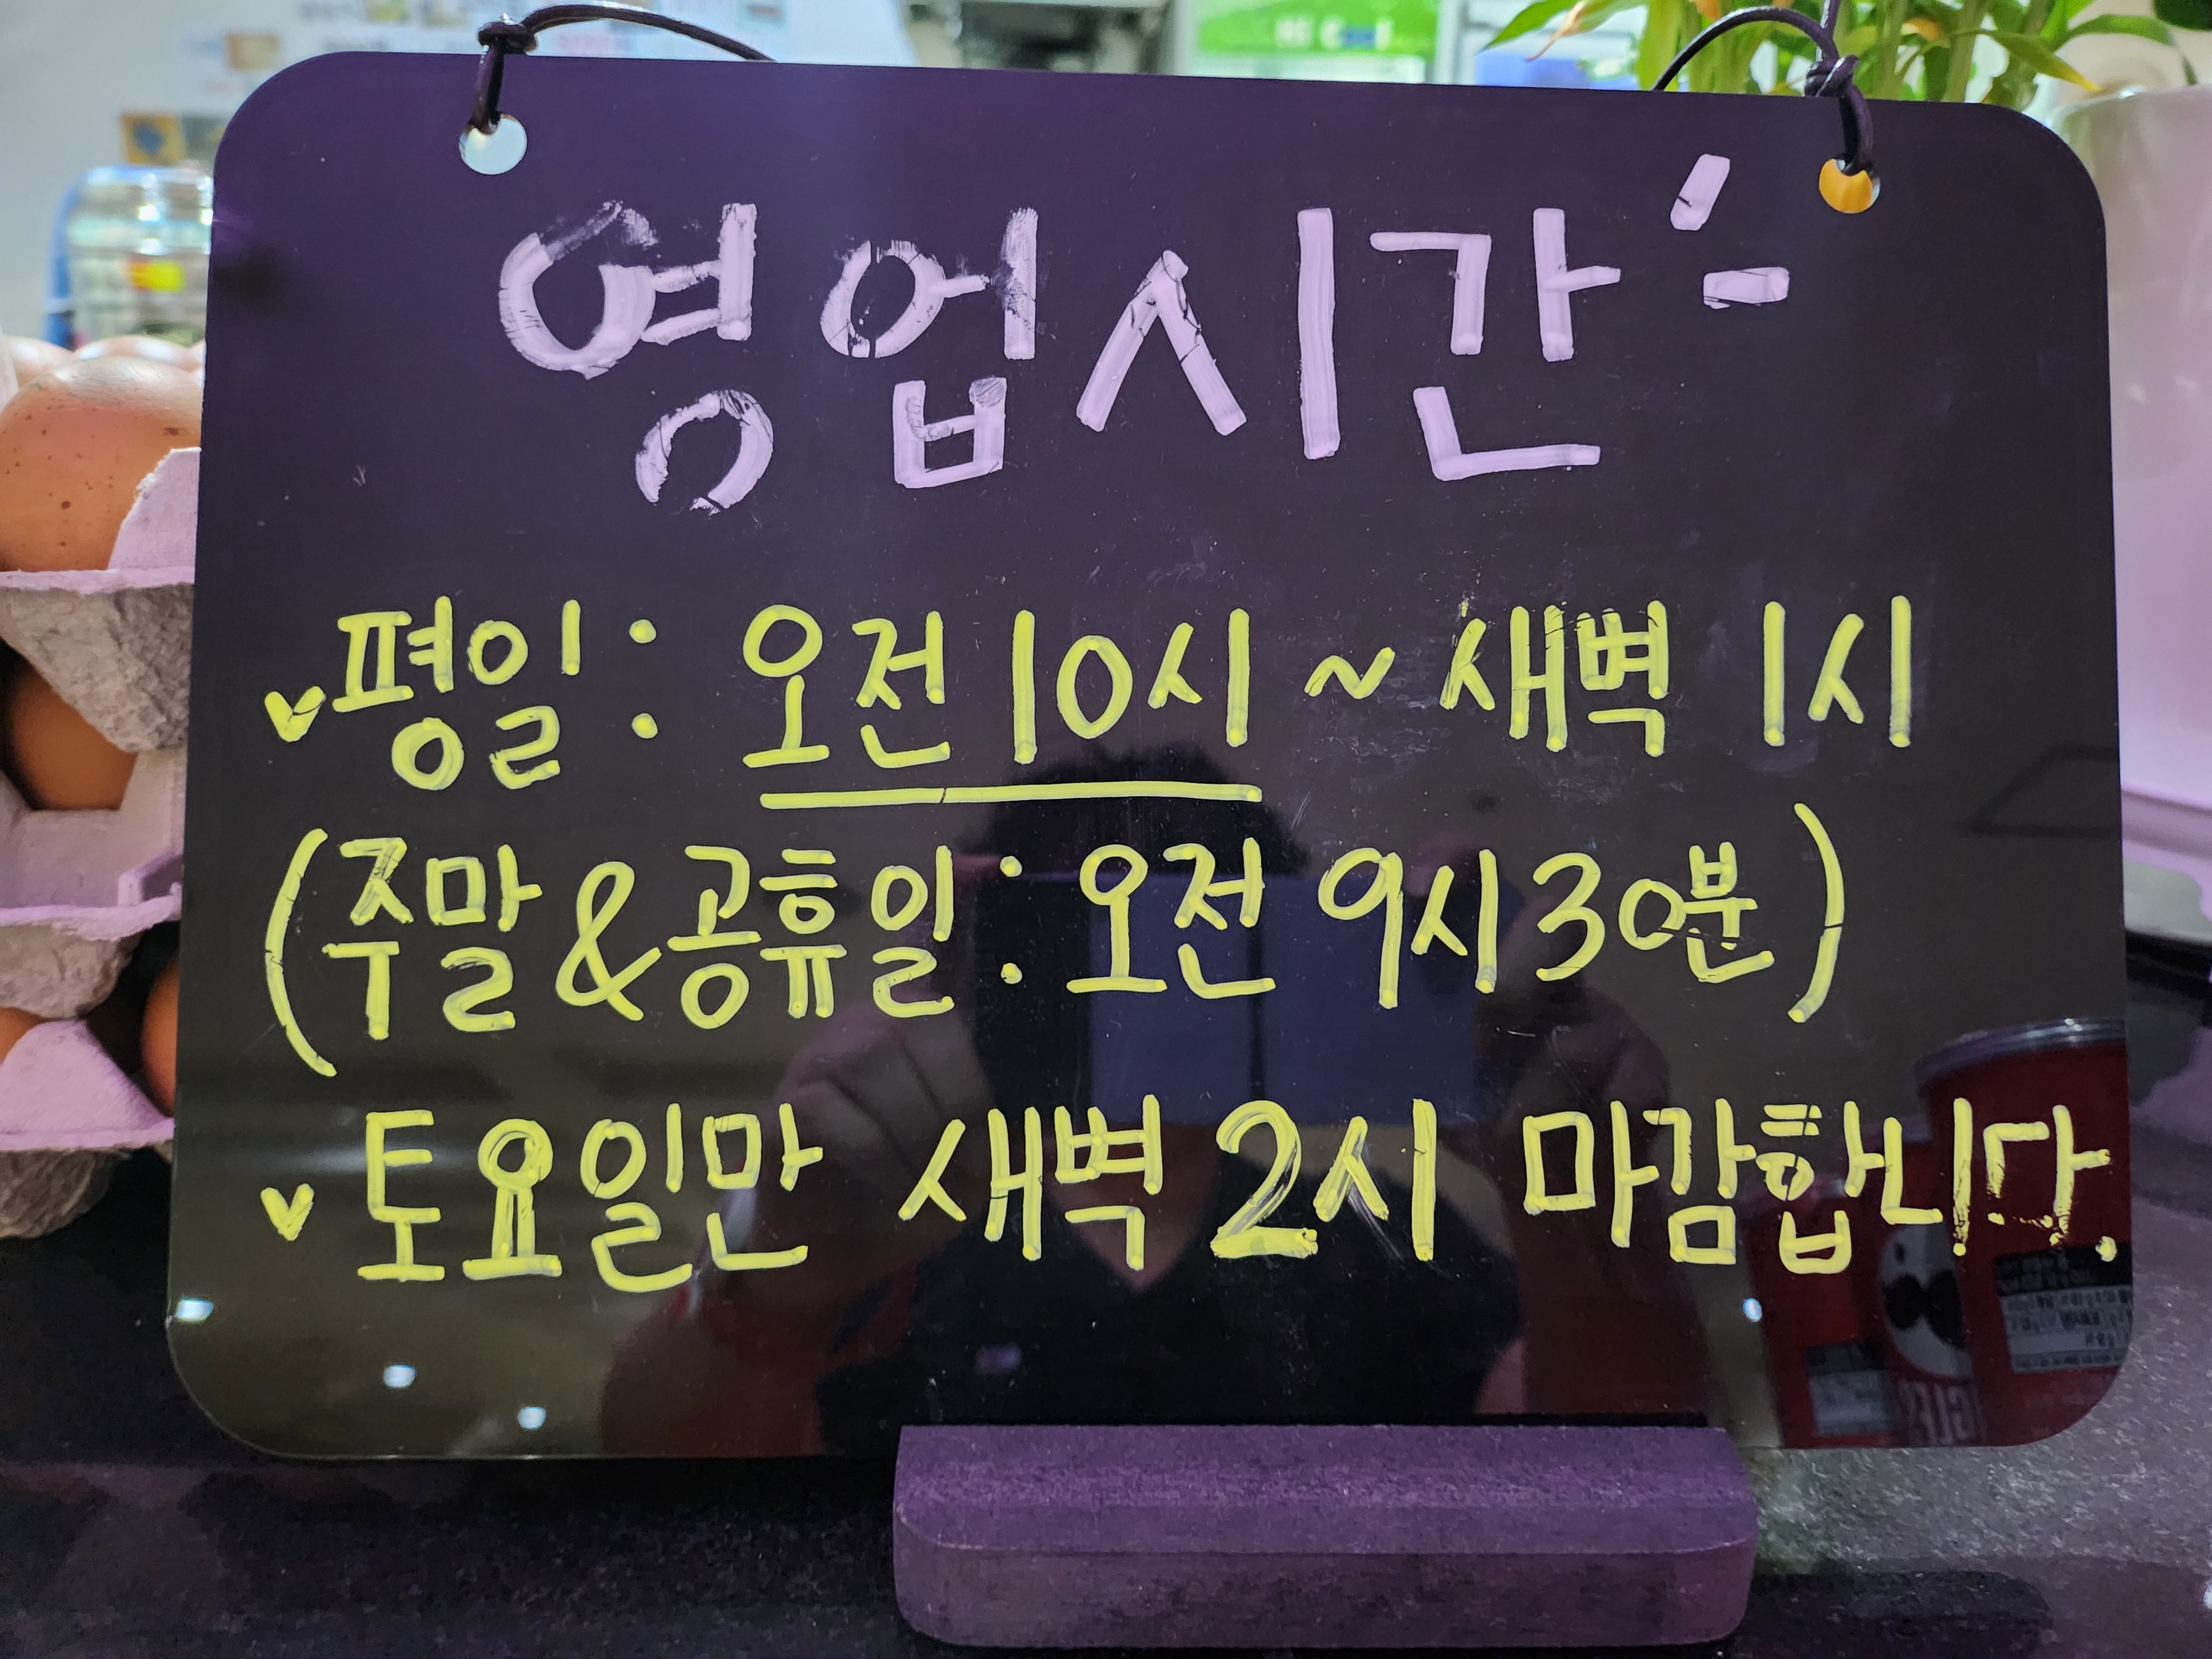 영업시간
평일: 오전 10시 ~ 새벽 1시
(주말&공휴일: 오전 9시 30분)
토요일만 새벽 2시 마감합니다.